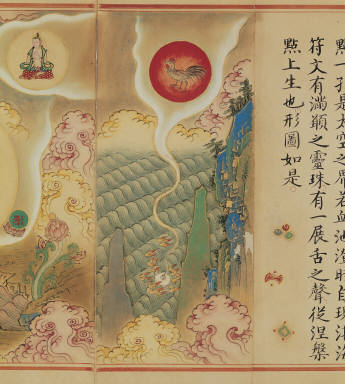 點一孔是太空之界若血池澄時自現
符文有滿之靈珠有一展舌之聲從涅槃
點上生也形圖如是